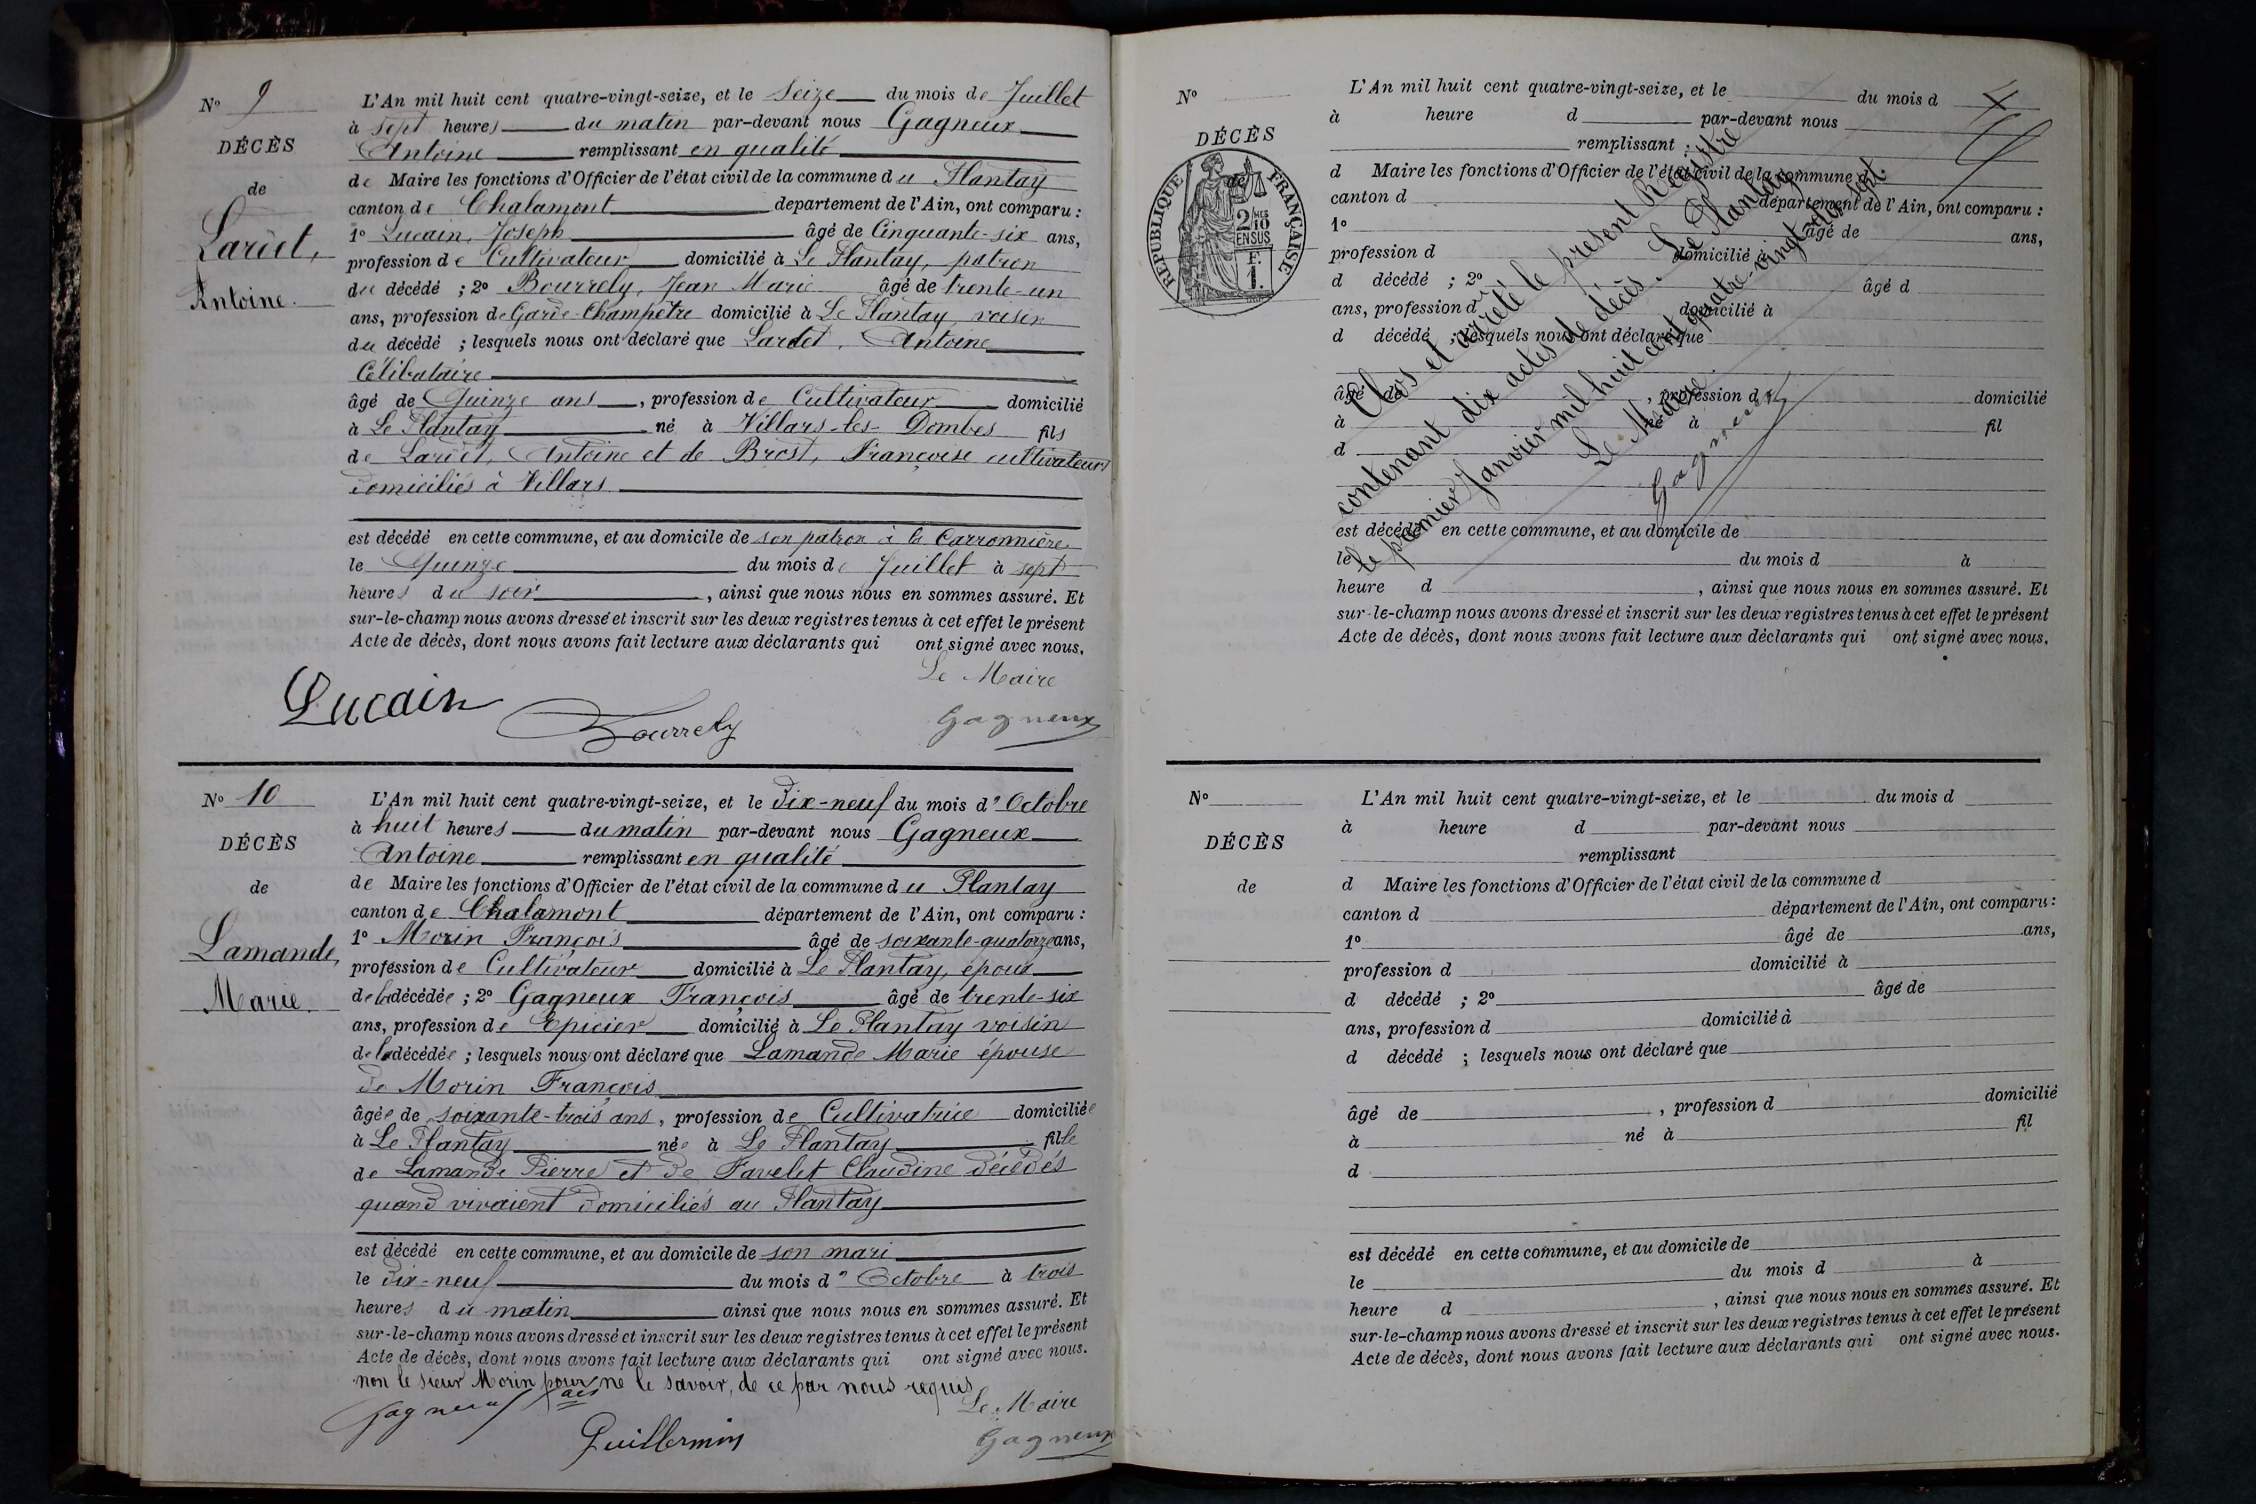 N° 9
DÉCÈS
de
Lardet,
Antoine.
L'An mil huit cent quatre-vingt-seize, et le Seize du mois de Juillet
à sept heures du matin par-devant nous Gagneux
Antoine remplissant en qualité
de Maire les fonctions d'Officier de l'état civil de la commune du Plantay
canton de Chalamont département de l'Ain, ont comparu :
1° Lucain, Joseph âgé de Cinquante-six ans,
profession de Cultivateur domicilié à Le Plantay, patron
du décédé ; 2° Bourrely, Jean Marie âgé de trente-un
ans, profession de Garde-Champêtre domicilié à Le Plantay voisin
du décédé ; lesquels nous ont déclaré que Lardet, Antoine
Célibataire
âgé de Quinze ans, profession de Cultivateur domicilié
à Le Plantay né à Villars-les-Dombes fils
de Lardet, Antoine et de Brost, Françoise cultivateurs
domiciliés à Villars
est décédé en cette commune, et au domicile de son patron à la Carronnière
le Quinze du mois de Juillet à sept
heures du soir, ainsi que nous nous en sommes assuré. Et
sur-le-champ nous avons dressé et inscrit sur les deux registres tenus à cet effet le présent
Acte de décès, dont nous avons fait lecture aux déclarants qui ont signé avec nous.
Le Maire
Lucain Bourrely Gagneux
N° 10
DÉCÈS
de
Lamande,
Marie.
L'An mil huit cent quatre-vingt-seize, et le Dix-neuf du mois d'Octobre
à huit heures du matin par-devant nous Gagneux
Antoine remplissant en qualité
de Maire les fonctions d'Officier de l'état civil de la commune du Plantay
canton de Chalamont département de l'Ain, ont comparu :
1° Morin François âgé de soixante-quatorze ans,
profession de Cultivateur domicilié à Le Plantay, époux
de la décédée ; 2° Gagneux François âgé de trente-six
ans, profession de Epicier domicilié à Le Plantay voisin
de la décédée ; lesquels nous ont déclaré que Lamande Marie épouse
de Morin François
âgée de soixante-trois ans, profession de Cultivatrice domiciliée
à Le Plantay née à Le Plantay fille
de Lamande Pierre et de Favelet Claudine décédés
quand vivaient domiciliés au Plantay
est décédé en cette commune, et au domicile de son mari
le dix-neuf du mois d'Octobre à trois
heures du matin ainsi que nous nous en sommes assuré. Et
sur-le-champ nous avons dressé et inscrit sur les deux registres tenus à cet effet le présent
Acte de décès, dont nous avons fait lecture aux déclarants qui ont signé avec nous.
non le sieur Morin pour ne le savoir, de ce par nous requis
Le Maire
Gagneux Guillermin Gagneux
N°
DÉCÈS
de
RÉPUBLIQUE FRANÇAISE
2/10 EN SUS
F. 1.
L'An mil huit cent quatre-vingt-seize, et le du mois d
à heure d par-devant nous
remplissant
d Maire les fonctions d'Officier de l'état civil de la commune d
canton d département de l'Ain, ont comparu :
1° âgé de ans,
profession d domicilié à
d décédé ; 2° âgé d
ans, profession d domicilié à
d décédé ; lesquels nous ont déclaré que
âgé de , profession d domicilié
à né à fil
d
est décédé en cette commune, et au domicile de
le du mois d à
heure d , ainsi que nous nous en sommes assuré. Et
sur-le-champ nous avons dressé et inscrit sur les deux registres tenus à cet effet le présent
Acte de décès, dont nous avons fait lecture aux déclarants qui ont signé avec nous.
Clos et arrêté le présent Registre
contenant dix actes de décès. Le Plantay
le premier Janvier mil huit cent quatre-vingt-dix-sept.
Le Maire.
Gagneux
N°
DÉCÈS
de
L'An mil huit cent quatre-vingt-seize, et le du mois d
à heure d par-devant nous
remplissant
d Maire les fonctions d'Officier de l'état civil de la commune d
canton d département de l'Ain, ont comparu :
1° âgé de ans,
profession d domicilié à
d décédé ; 2° âgé de
ans, profession d domicilié à
d décédé ; lesquels nous ont déclaré que
âgé de , profession d domicilié
à né à fil
d
est décédé en cette commune, et au domicile de
le du mois d à
heure d , ainsi que nous nous en sommes assuré. Et
sur-le-champ nous avons dressé et inscrit sur les deux registres tenus à cet effet le présent
Acte de décès, dont nous avons fait lecture aux déclarants qui ont signé avec nous.